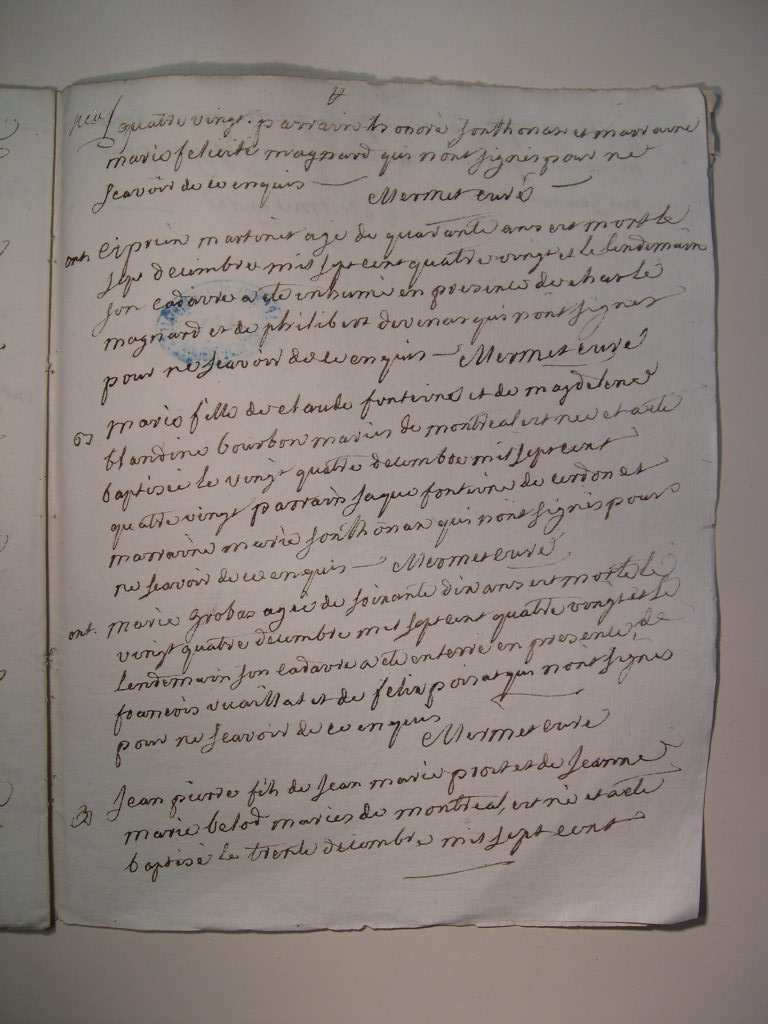 quatre vingt. parrain honoré sonthonax et marraine
marie felicité magnard qui n'ont signés pour ne
scavoir de ce enquis Mermet curé
ent. Ciprien martinet agé de quarante ans est mort le
sept decembre mil sept cent quatre vingt et le lendemain
son cadavre a eté inhumé en presence de charle
magnard et de philibert devenas qui n'ont signer
pour ne scavoir de ce enquis Mermet curé
marie fille de claude fonteine et de magdelene
blandine bourbon mariés de montreal est née et a eté
baptisée le vingt quatre decembre mil sept cent
quatre vingt parrain jaque fonteine de cerdon et
marraine marie sonthonax qui n'ont signés pour
ne scavoir de ce enquis Mermet curé
ent. marie grobas agée de soixante dix ans est morte le
vingt quatre decembre mil sept cent quatre vingt et le
lendemain son cadavre a eté enterré en presence de
francois vuaillat et de felix poisat qui n'ont signés
pour ne scavoir de ce enquis
Mermet curé
jean pierre fils de jean marie prost et de jeanne
marie belod mariés de montreal, est né et a eté
baptisé le trente decembre mil sept cent